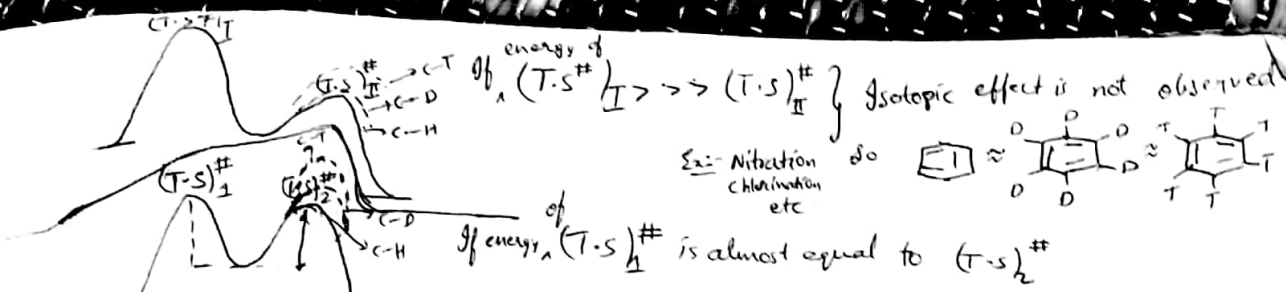 (T.S)#I
(T.S)#II → C-T
→ C-D
→ C-H
If energy of (T.S#)I >>> (T.S)#II } Isotopic effect is not observed
Ex:- Nitration
Chlorination
etc
so ≈ ≈
D D D D D D
T T T T T T
(T-S)#1
C-T
(T.S)#2
C-D
C-H
If energy of (T.S)#1 is almost equal to (T.S)#2